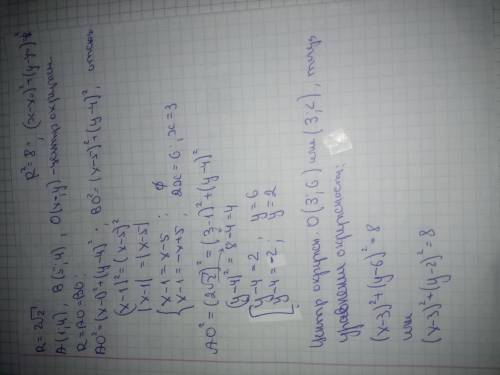 R=2√2   R²=8, (x-x₀)²+(y-y₀)²=8
A(1,4), B(5;4), O(x;y)-центр окружн
R=AO=BO;
AO²=(x-1)²+(y-4)²; BO²=(x-5)²+(y-4)²,
(x-1)²=(x-5)²
|x-1|=|x-5|
x-1=x-5; ∅
x-1=-x+5, 2x=6; x=3
AO²=(2√2)²=(3-1)²+(y-4)²
(y-4)²=8-4=4
y-4=2, y=6
y-4=-2, y=2
Центр окружн. O(3;6) или (3;2), тогда
уравнения окружности:
(x-3)²+(y-6)²=8
или
(x-3)²+(y-2)²=8